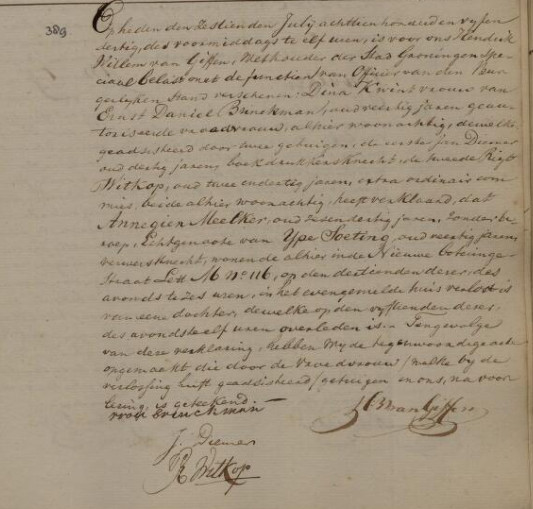 389
Op heden den zestienden Julij achttienhonderd en vyf en
dertig, des voormiddags te elf uren, is voor ons Hendrik
Willem van Giffen, Wethouder der Stad Groningen Spe-
ciaal Belast met de functien van Officier van den Bur-
gerlyken Stand verschenen: Dina Kwint vrouw van
Ernst Daniel Brinckman, oud veertig jaren geau-
toriseerde vroedvrouw, alhier woonachtig, dewelke
geadsisteerd door twee getuigen, de eerste Jan Diemer
oud dertig jaren, boekdrukkersknecht, de tweede
Witkop, oud twee en dertig jaren, extra ordinair com-
mies, beide alhier woonachtig, heeft verklaard, dat
Annegien Meelker, oud zes en dertig jaren, zonder be-
roep, Echtgenoote van Ype Soeting, oud veertig jaren,
verwersknecht, wonende alhier in de Nieuwe boteringe-
straat Lett M No 116, op den dertienden dezer, des
avonds te zes uren, in het evengemelde huis verlost is
van eene dochter, dewelke op den vyftienden dezer,
des avonds te elf uren overleden is. Tengevolge
van deze verklaring, hebben wy de tegenwoordige acte
opgemaakt die door de vroedvrouw /welke by de
verlossing heeft geadsisteerd/ getuigen en ons, na voor-
lezing, is geteekend.
vrou Brinckman
HW van Giffen
J. Diemer
R Witkop